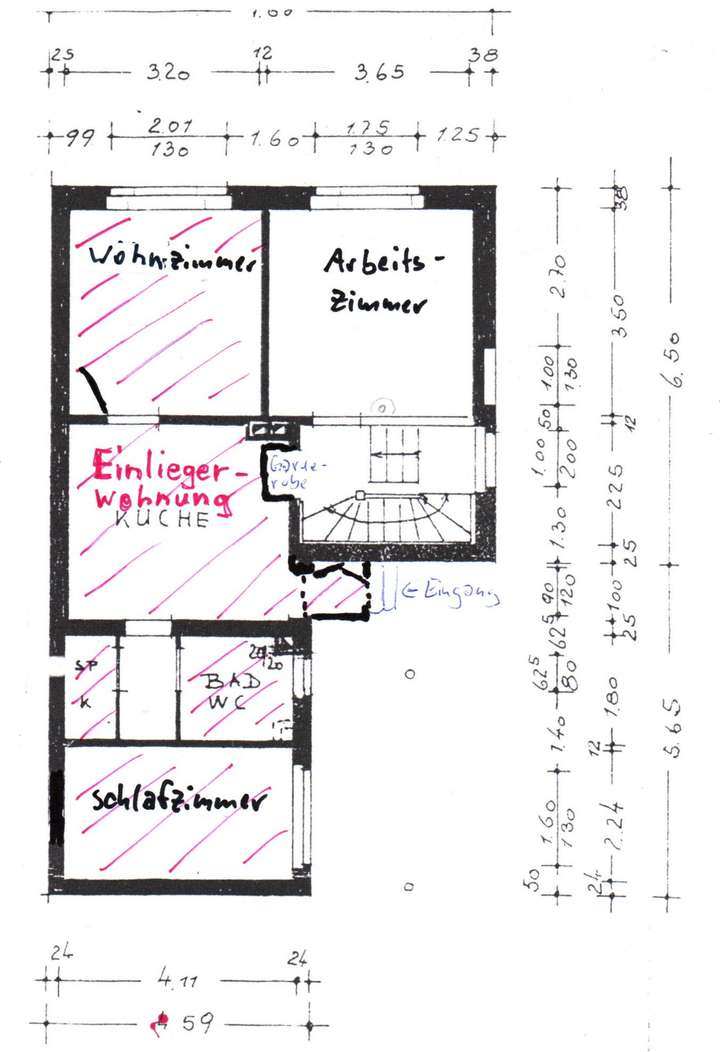 25 12 38
3.20 3.65
99 2.01 1.60 1.75 1.25
130 130
Wohnzimmer
Arbeits-
zimmer
Einlieger-
wohnung
KÜCHE
Garde-
robe
← Eingang
SP
K
BAD
WC
20/20
Schlafzimmer
2.70
1.00
130
50
1.00
200
1.30
90
120
625
625
80
1.40
1.60
130
50
38
350
12
225
25
100
25
1.80
12
2.24
24
6.50
5.65
24 24
4.11
59